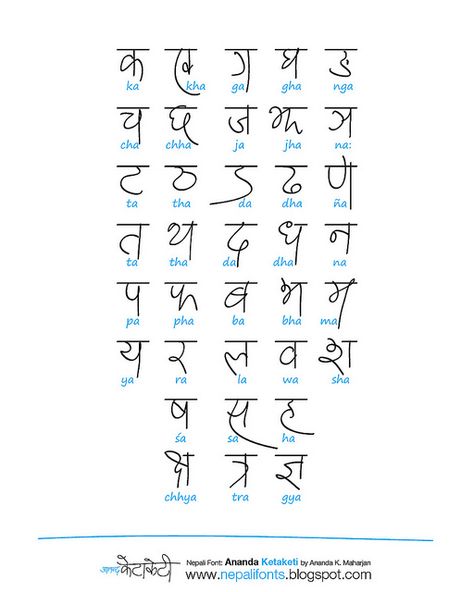 क ख ग घ ङ
ka kha ga gha nga
च छ ज झ ञ
cha chha ja jha na:
ट ठ ड ढ ण
ta tha da dha ña
त थ द ध न
ta tha da dha na
प फ ब भ म
pa pha ba bha ma
य र ल व श
ya ra la wa sha
ष स ह
śa sa ha
क्ष त्र ज्ञ
chhya tra gya
आनन्द केटाकेटी
Nepali Font: Ananda Ketaketi by Ananda K. Maharjan
www.nepalifonts.blogspot.com